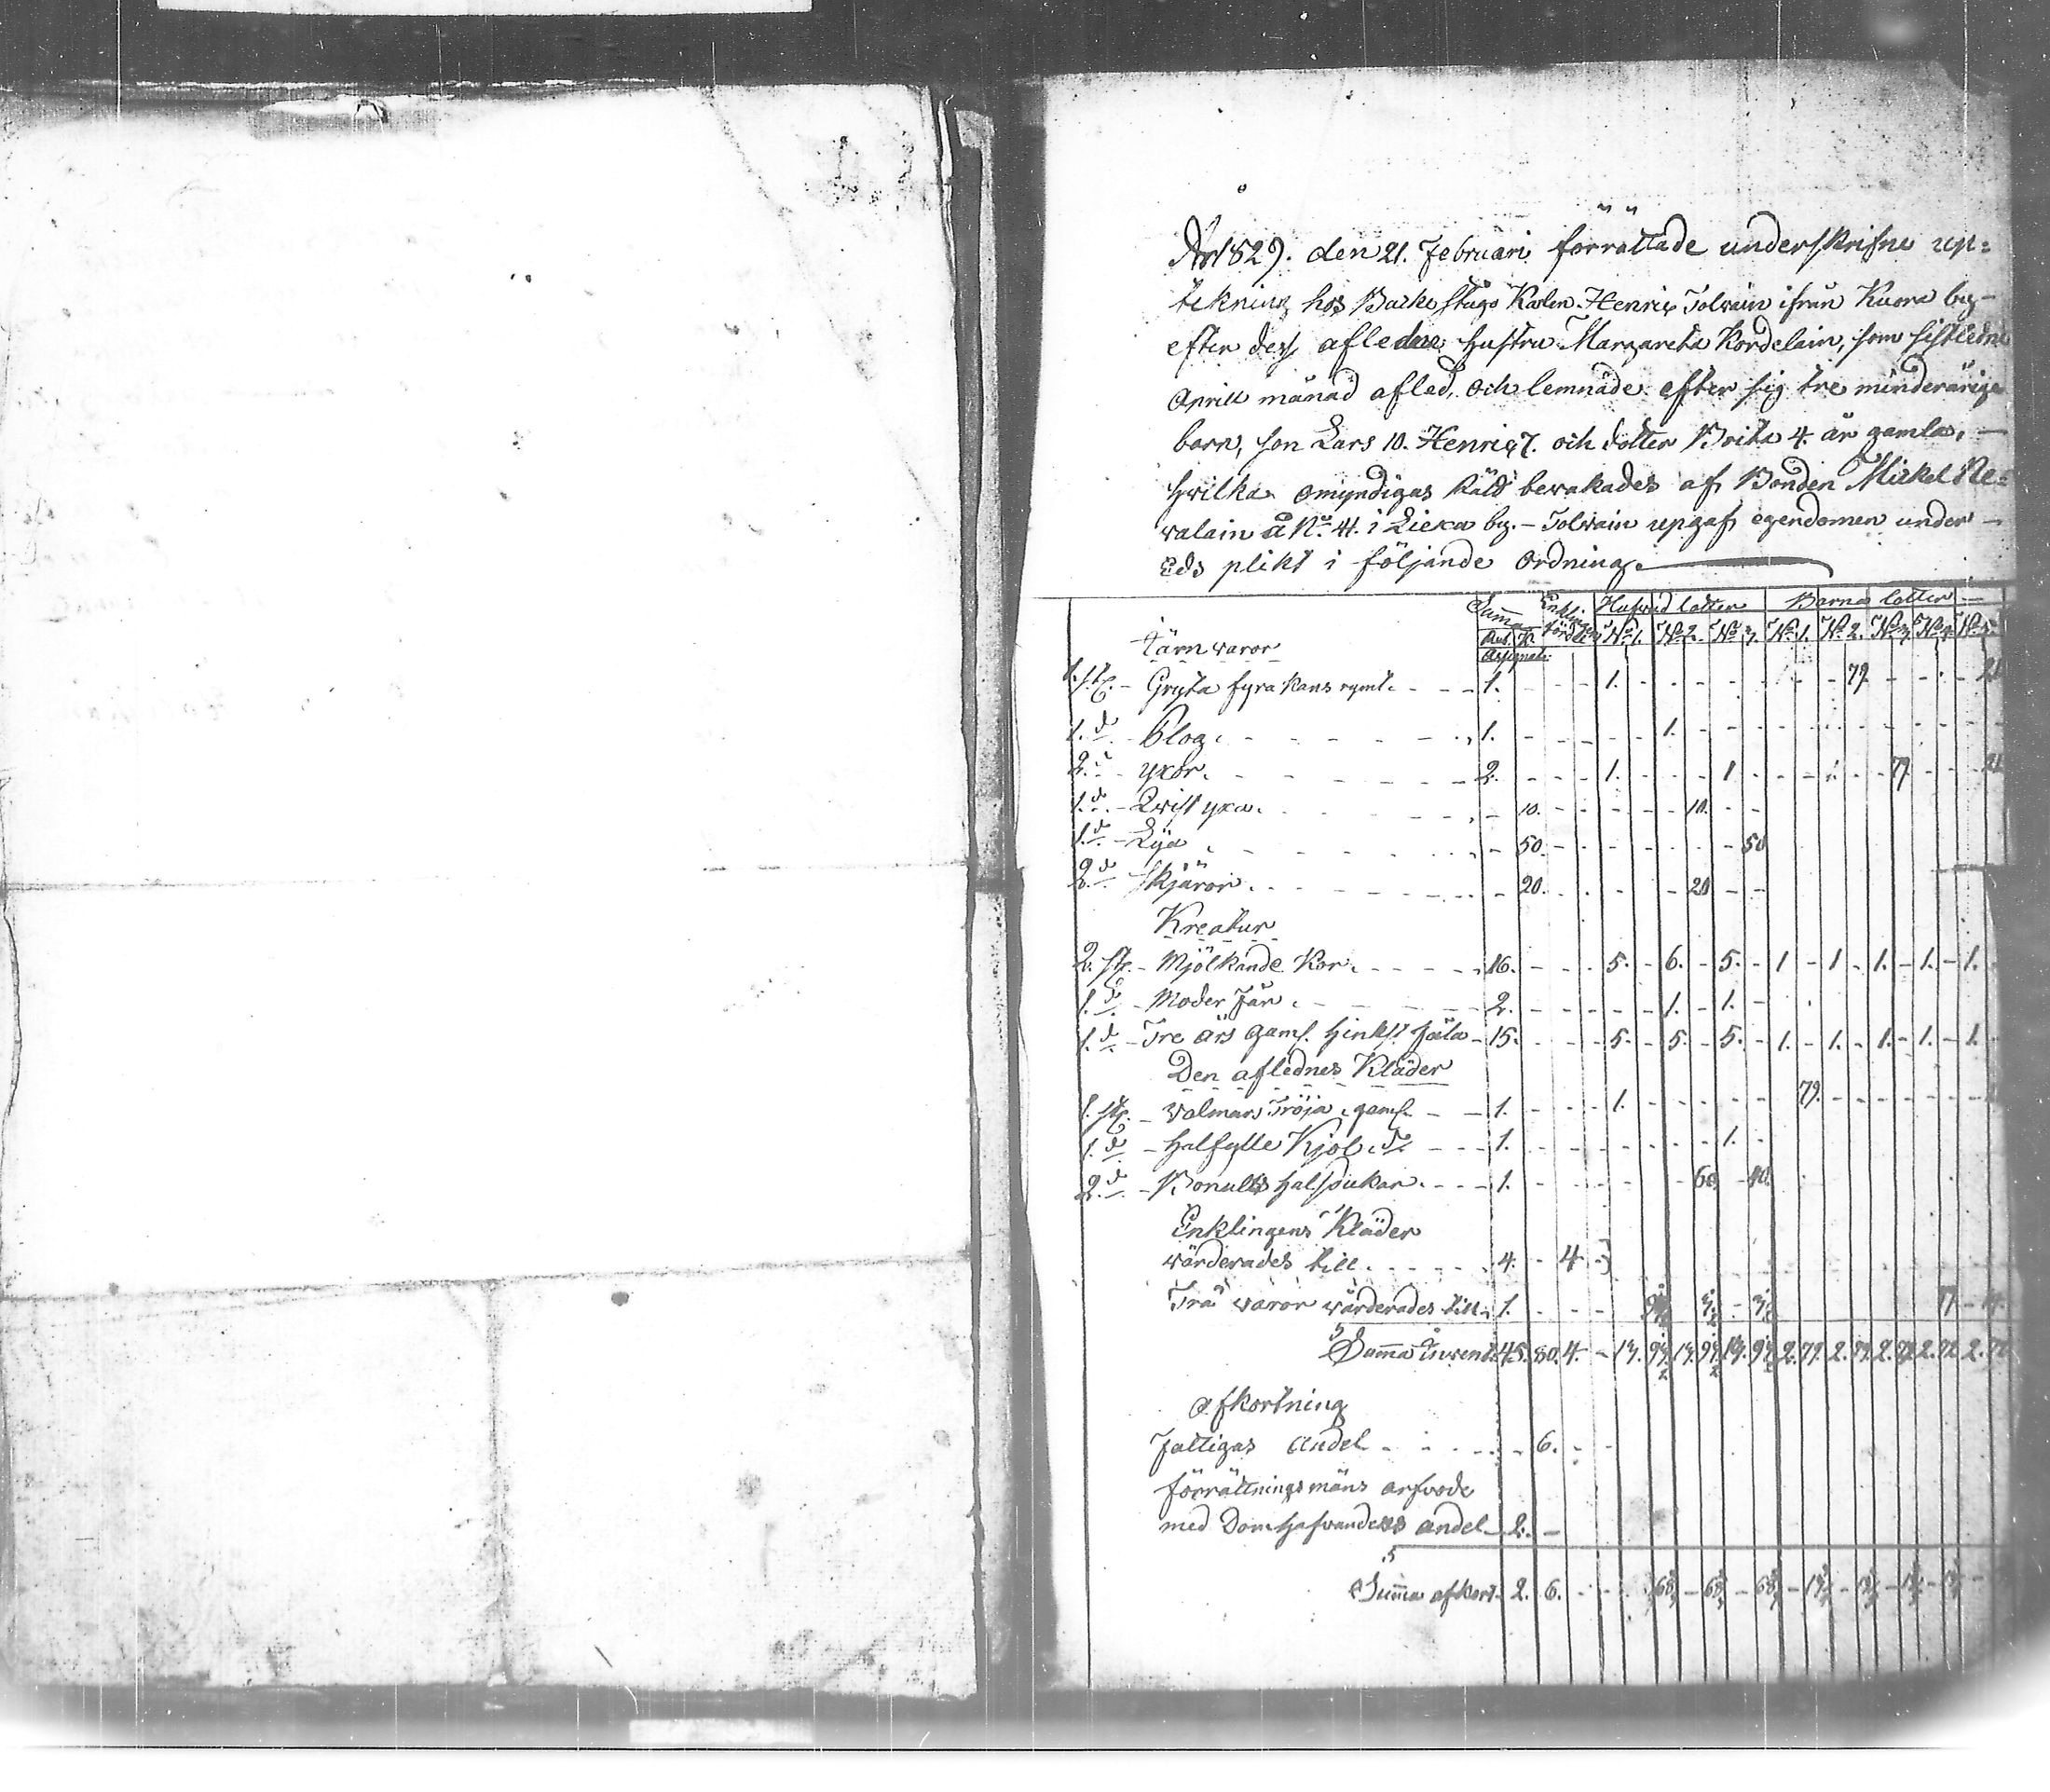 År 1829. den 21. Februari förrättade underskrifne up=
tekning hos Backestugo Karlen Henric Tolvain ifrån Kuora by-
efter dess afledne hustru Margareta Kordelain, som sistledne
Aprill månad afled, och lemnade efter sig tre minderårige
barn, son Lars 10. Henric 7. och dotter Brita 4. år gamla, -
hvilka omyndigas Rätt bevakades af Bonden Mickel Ne=
valain å No. 4. i Liexa by. - Tolvain upgaf egendomen under -
Eds plikt i följande Ordning.
Summa Enklingens fördel Hufvud lotter Barnas lotter -
Järn varor Rub. K. No. 1. No. 2. No. 3. No. 1. No. 2. No. 3. No. 4. No. 5.
Assignat:
1. st. - Gryta fyra kans rymt. - - - 1. - - - 1. - - - 79. - - - 21
1. d - Plog. - - - 1. - - - 1. - - -
2. d - yxor. - - - 2. - - - 1. - - - 1 - - - 79. - - - 21
1. d - Qvist yxa. - - - 10. - - - 10. - -
1. d - Lya - - - 50. - - - 50
2. d skjäror. - - - 20. - - - 20 - -
Kreatur
2. st. - Mjölkande Kor. - - - 16. - - - 5. - 6. - 5. - 1 - 1 - 1. - 1. - 1.
1. d - Moder Får. - - - 2. - - - 1. - 1. -
1. d - Tre års gaml. Hinkst fåla - 15. - - - 5. - 5. - 5. - 1. - 1. - 1. - 1. - 1.
Den aflednes Kläder
1. st. - Valmars Tröja, gaml. - - 1. - - - 1. - - - 79. - - -
1. d - Halfylle Kjol. d - - - 1. - - - 1. -
2. d - Bonulls halsdukar. - - - 1. - - - 60 - 40.
Enklingens Kläder
värderades till. - - - 4. - 4 -
Trä varor värderades till. 1. - - -
Summa Invent. 45. 80. 4. - 14.
afkortning
Fattigas Andel - - - 6. - -
förrättningsmäns arfvode
med Domhafvandens andel - 2. -
Summa afkort. 2. 6. - -